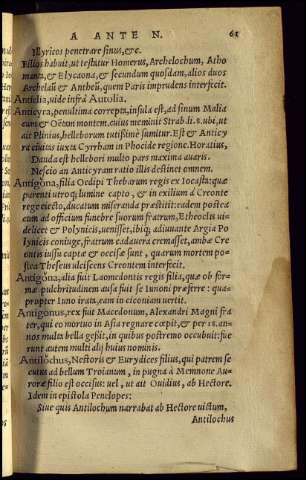 A ANTE N. 61
Illyricos penetrare sinus, &c.
filios habuit, ut testatur Homerus, Archelochum, Atho
manta, & Elycaona, & secundum quosdam, alios duos
Archelaũ & Antheũ, quem Paris imprudens interfecit.
Antelia, uide infrà Autolia.
Anticyra, penultima correpta, insula est, ad sinum Malia
cum, & Oetæi montem. cuius meminit Strab. li. 9. ubi, ut
ait Plinius, helleborum tutißimè sumitur. Est & Anticy
ra ciuitas iuxta Cyrrham in Phocide regione. Horatius,
Danda est hellebori multo pars maxima auaris.
Nescio an Anticyram ratio illis destinet omnem.
Antigona, filia Oedipi Thebarum regis ex Iocasta: quæ
parenti utroq; lumine capto, & in exilium à Creonte
rege eiecto, ducatum miseranda præstitit: eadem postea
cum ad officium funebre suorum fratrum, Etheoclis ui-
delicet & Polynicis, uenisset, ibiq; adiuuante Argia Po
lynicis coniuge, fratrum cadauera cremasset, ambæ Cre
ontis iussu captæ & occisæ sunt, quarum mortem po-
stea Theseus ulciscens Creontem interfecit.
Antigona, alia fuit Laomedontis regis filia, quæ ob for-
mæ pulchritudinem ausa fuit se Iunoni præferre: qua-
propter Iuno irata, eam in ciconiam uertit.
Antigonus, rex fuit Macedonum, Alexandri Magni fra
ter, qui eo mortuo in Asia regnare cœpit, & per 18. an-
nos multa bella geßit, in quibus postremo occubuit: fue
runt autem multi alij huius nominis.
Antilochus, Nestoris & Eurydices filius, qui patrem se
cutus ad bellum Troianum, in pugna à Memnone Au-
roræ filio est occisus: uel, ut ait Ouidius, ab Hectore.
Idem in epistola Penelopes:
Siue quis Antilochum narrabat ab Hectore uictum,
Antilochus